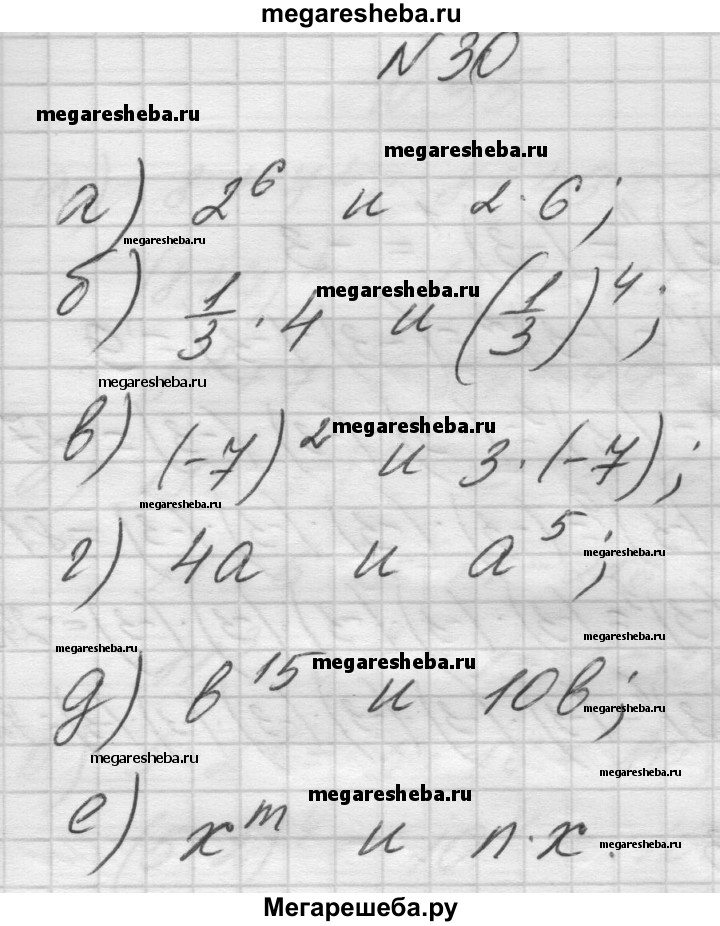 megaresheba.ru
N 30
megaresheba.ru
megaresheba.ru
а) 2⁶ и 2·6;
megaresheba.ru
б) 1/3 · 4 и (1/3)⁴;
megaresheba.ru
megaresheba.ru
в) (-7)² и 3·(-7);
megaresheba.ru
megaresheba.ru
г) 4a и a⁵;
megaresheba.ru
megaresheba.ru
megaresheba.ru
д) в¹⁵ и 10в;
megaresheba.ru
megaresheba.ru
megaresheba.ru
megaresheba.ru
е) xᵐ и n·x.
megaresheba.ru
megaresheba.ru
Мегарешеба.ру